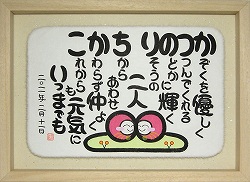 かぞくを優しく
つつんでくれる
のどかに輝く
りそうの二人
ちからあわせ
かわらず仲よく
これからも元気に
いつまでも